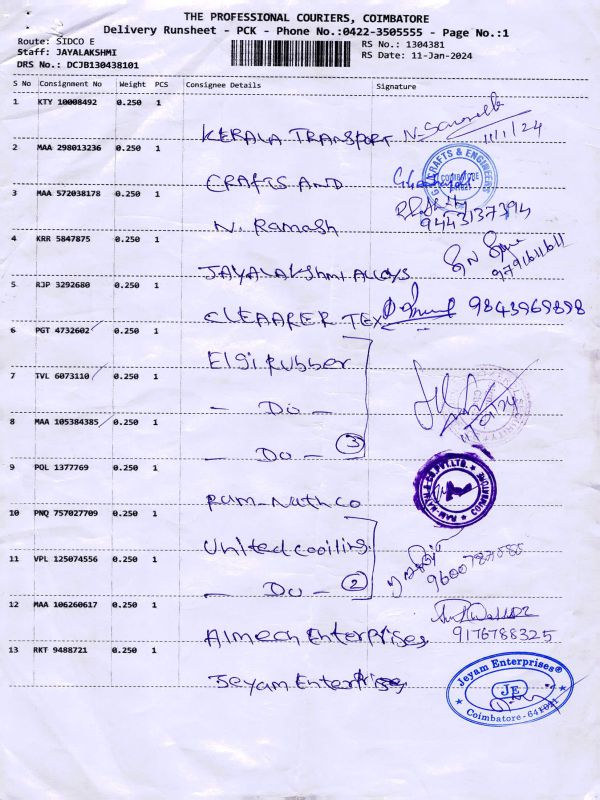 THE PROFESSIONAL COURIERS, COIMBATORE
Delivery Runsheet - PCK - Phone No.:0422-3505555 - Page No.:1
Route: SIDCO E
Staff: JAYALAKSHMI
DRS No.: DCJB130438101
RS No.: 1304381
RS Date: 11-Jan-2024
S No Consignment No Weight PCS Consignee Details Signature
1 KTY 10008492 0.250 1
KERALA TRANSPORT
11/1/24
2 MAA 298013236 0.250 1
CRAFTS AND
CRAFTS & ENGINEERS
COIMBATORE
3 MAA 572038178 0.250 1
N. Ramash
9443137394
4 KRR 5847875 0.250 1
JAYALAKSHMI ALLOYS
9791611611
5 RJP 3292680 0.250 1
CLEAARER TEX
9843969898
6 PGT 4732602 0.250 1
Elgi Rubber
7 TVL 6073110 0.250 1
- Do -
8 MAA 105384385 0.250 1
- Do - 3
9 POL 1377769 0.250 1
Ram-Nath co
10 PNQ 757027709 0.250 1
United cooiling
11 VPL 125074556 0.250 1
- Do - 2
9600787585
12 MAA 106260617 0.250 1
Almech Enterprises
9176788325
13 RKT 9488721 0.250 1
Jeyam Enterprises
Jeyam Enterprises®
JE
Coimbatore-641021